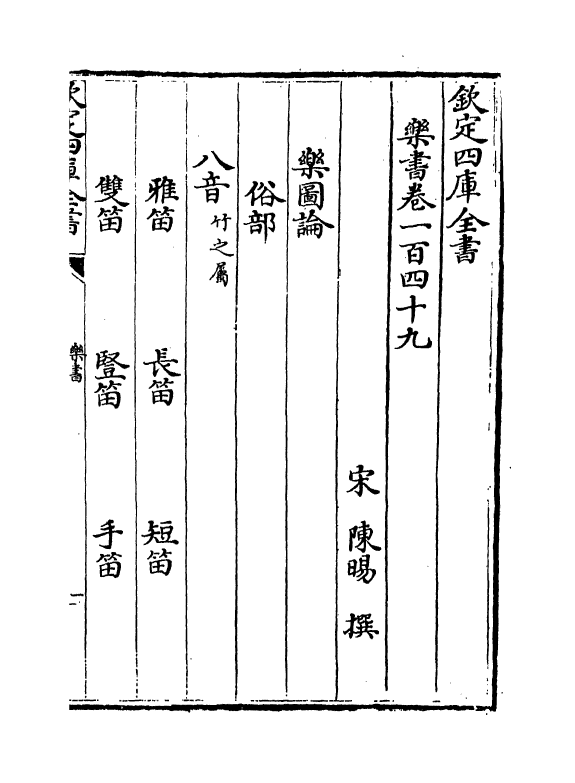 欽定四庫全書
樂書卷一百四十九
宋 陳暘 撰
樂圖論
俗部
八音 竹之屬
雅笛 長笛 短笛
雙笛 豎笛 手笛
欽定四庫全書 樂書 一